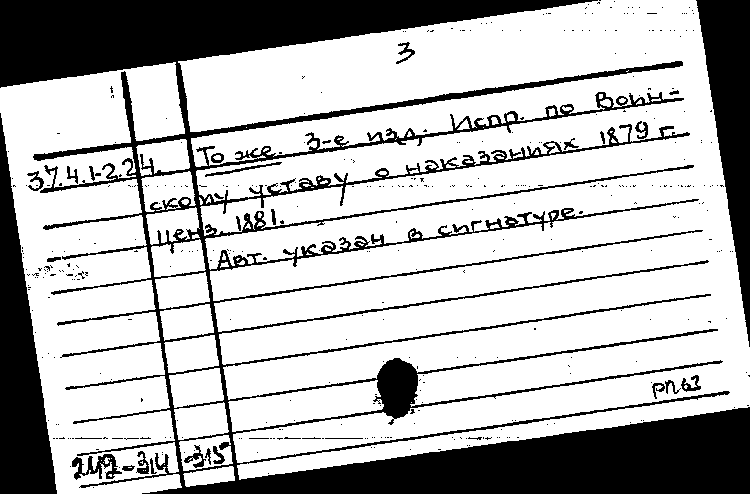 3
37.4.1-2.24. То же. 3-е изд., Испр. по Воин-
скому уставу о наказаниях 1879 г.
ценз. 1881.
Авт. указан в сигнатуре.
РП63
242-314-315